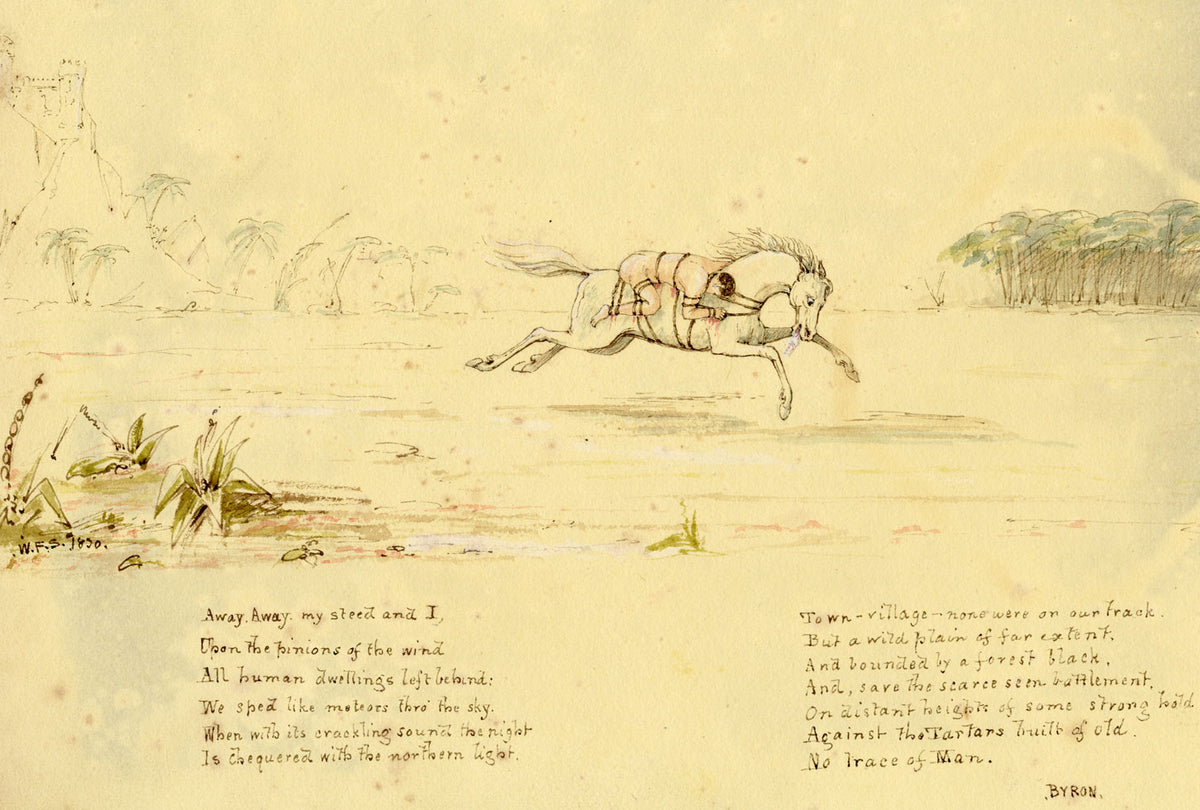 W.F.S. 1850.
Away. Away. my steed and I,
Upon the pinions of the wind
All human dwellings left behind:
We sped like meteors thro' the sky.
When with its crackling sound the night
Is chequered with the northern light.
Town-village-none were on our track.
But a wild plain of far extent.
And bounded by a forest black,
And, save the scarce seen battlement.
On distant heights of some strong hold
Against the Tartars built of old.
No Trace of Man.
BYRON.